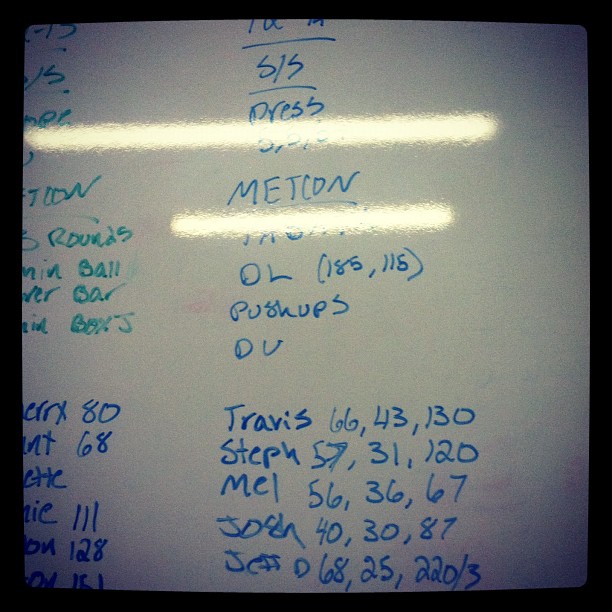 S/S
Press
METCON
DL (185, 115)
Pushups
DU
Travis 66, 43, 130
Steph 57, 31, 120
Mel 56, 36, 67
Josh 40, 30, 87
Jeff D 68, 25, 220/3
-15
/S
TCON
Rounds
min Ball
ver Bar
in Box J
erry 80
nt 68
ette
nie 111
on 128
on 151